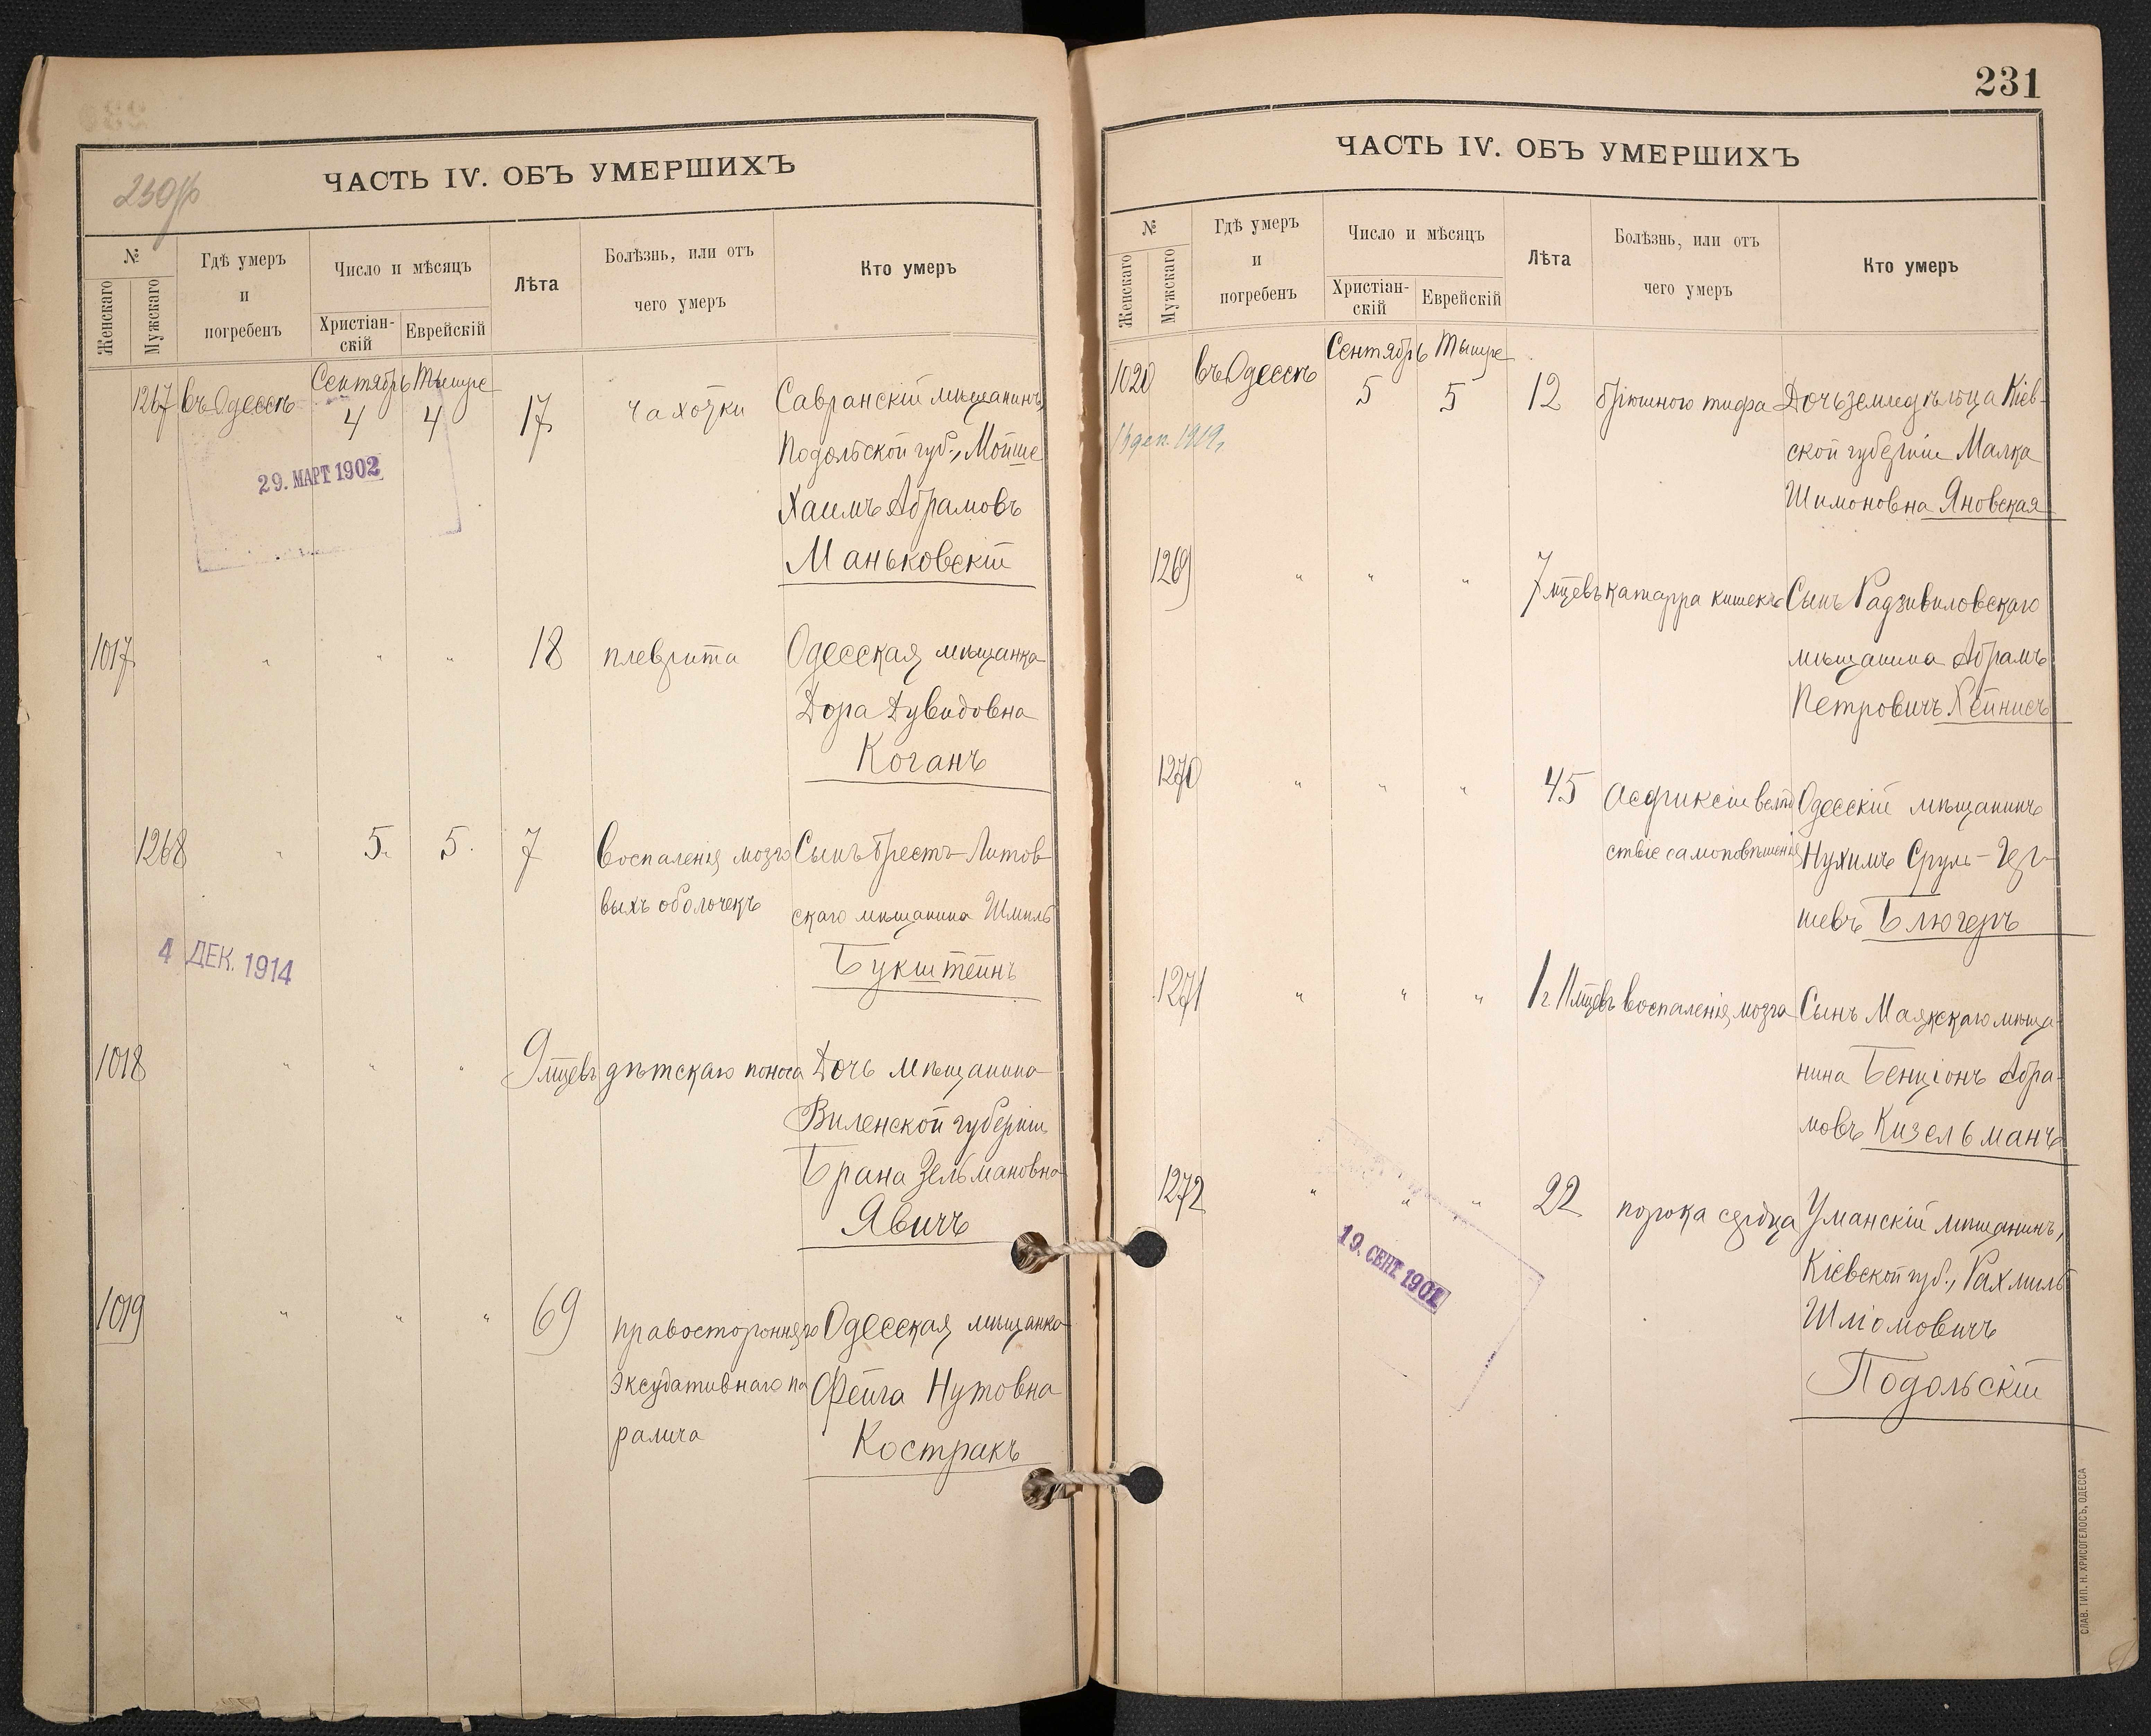 230об
ЧАСТЬ IV. ОБЪ УМЕРШИХЪ
№
Женскаго
Мужскаго
Гдѣ умеръ
и
погребенъ
Число и мѣсяцъ
Христіан-
скій
Еврейскій
Лѣта
Болѣзнь, или отъ
чего умеръ
Кто умеръ
Сентябрь Тышре
1267 въ Одессѣ 4 4 17 чахотки Савранскій мѣщанинъ,
Подольской губ., Мойше
Хаимъ Абрамовъ
Маньковскій
29. МАРТ 1902
1017 " " " 18 плеврита Одесская мѣщанка
Дора Дувидовна
Коганъ
1268 " 5. 5. 7 воспаленія мозго Сынъ Брестъ-Литов
выхъ оболочекъ скаго мѣщанина Шмиль
Букштейнъ
4 ДЕК. 1914
1018 " " " 9 мцевъ дѣтскаго поноса Дочь мѣщанина
Виленской губерніи
Брана Зельмановна
Явичъ
1019 " " " 69 правосторонняго Одесская мѣщанка
эксудативнаго па Фейга Нутовна
ралича Костракъ
231
ЧАСТЬ IV. ОБЪ УМЕРШИХЪ
№
Женскаго
Мужскаго
Гдѣ умеръ
и
погребенъ
Число и мѣсяцъ
Христіан-
скій
Еврейскій
Лѣта
Болѣзнь, или отъ
чего умеръ
Кто умеръ
Сентябрь Тышре
1020 въ Одессѣ 5 5 12 брюшного тифа Дочь земледѣльца Кіев-
1919, ской губерніи Малка
Шимоновна Яновская
1269 " " " 7 мцевъ катарра кишекъ Сынъ Радзивиловскаго
мѣщанина Абрамъ
Петровичъ Хейнисъ
1270 " " " 45 Асфиксіи вслѣд Одесскій мѣщанинъ
ствіе самоповѣшенія Нухимъ Сруль-Гер-
шевъ Блюгеръ
1271 " " " 1 г 11 мцевъ воспаленія мозга Сынъ Маякскаго мѣща-
нина Бенціонъ Абра-
мовъ Кизельманъ
1272 " " " 22 порока сердца Уманскій мѣщанинъ,
Кіевской губ., Рахмиль
Шліомовичъ
Подольскій
19. СЕНТ 1901
СЛАВ. ТИП. Н. ХРИСОГЕЛОСЪ, ОДЕССА